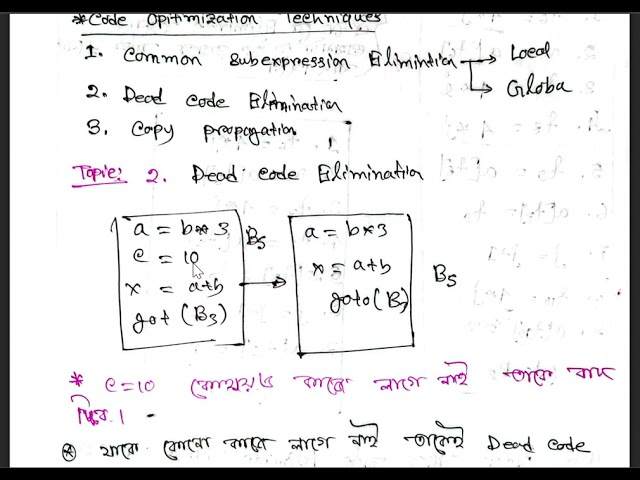 *Code Opitimization Techniques
1. Common Subexpression Elimintion → Local
→ Globa
2. Dead code Elimination
3. Copy propogation
Topic: 2. Dead code Elimination
a = b*3
c = 10
x = a+b
got (B3)
B5
a = b*3
x = a+b
goto (B
B5
* c=10 কোথাও কাজে লাগে নাই তাকে বাদ
দিব।
* যাকে কোনো কাজে লাগে নাই তাকেই Dead code